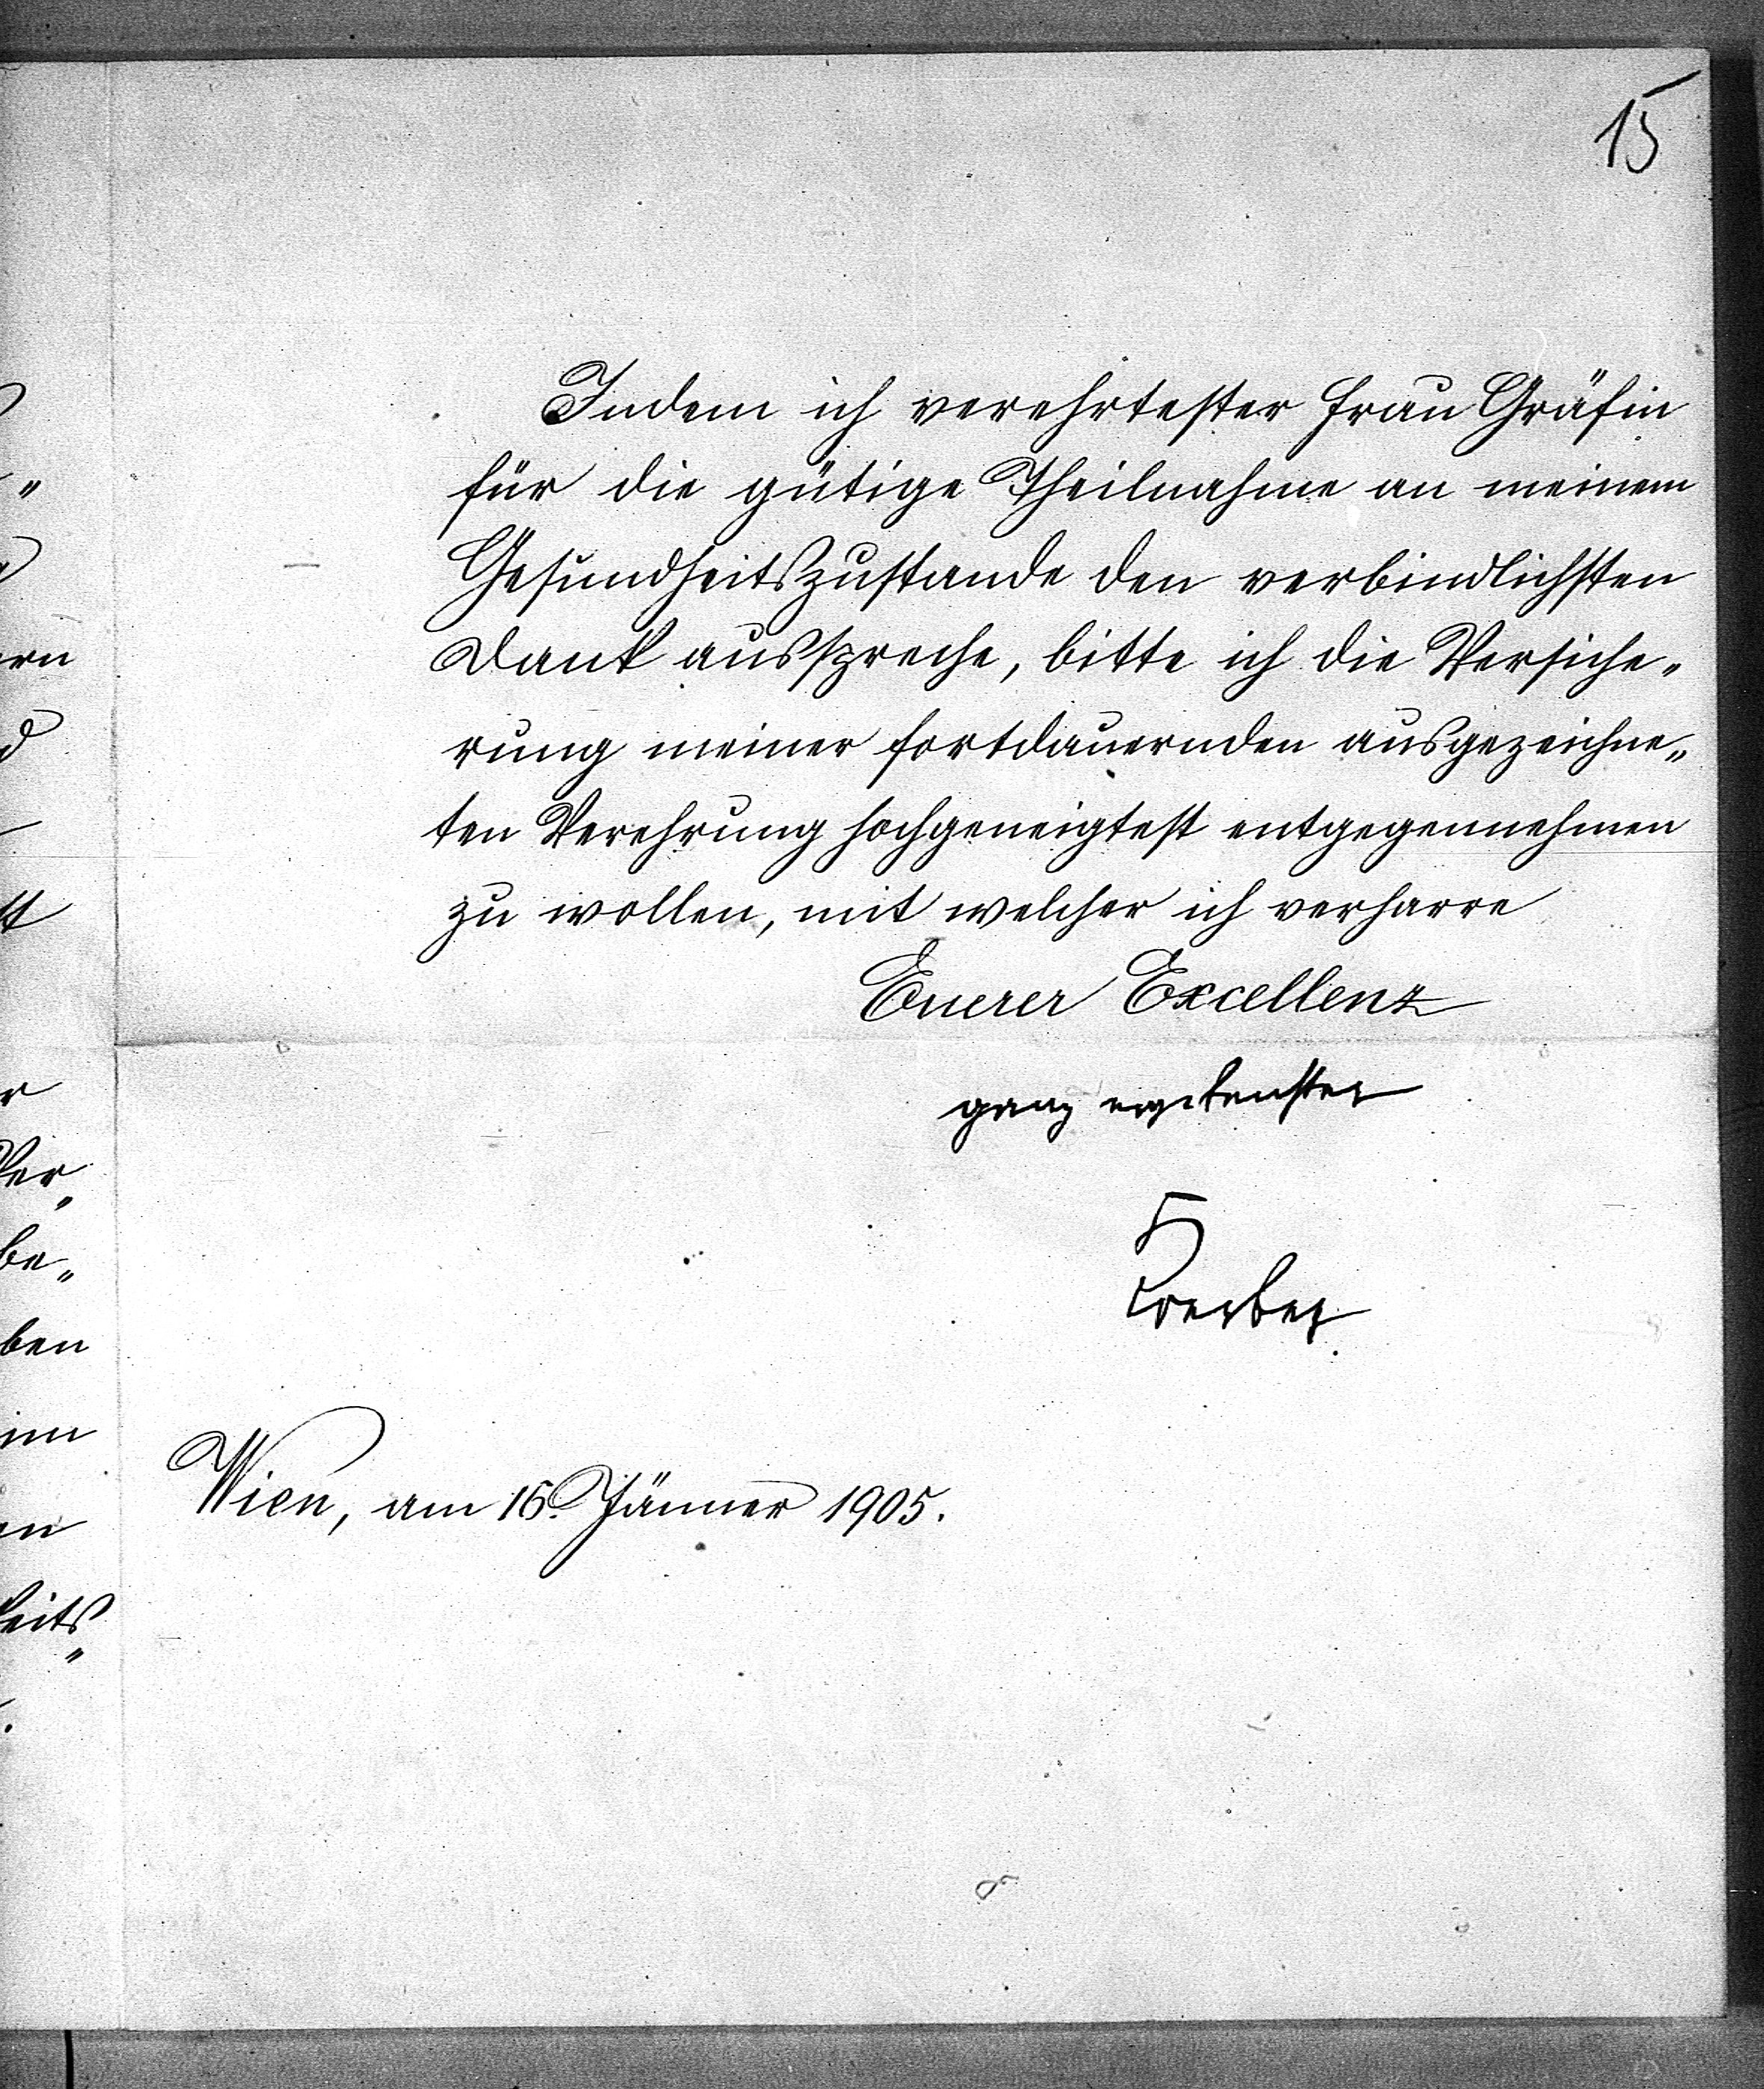 15
Indem ich verehrtester Frau Gräfin
für die gütige Theilnahme an meinem
Gesundheitszustande den verbindlichsten
Dank ausspreche, bitte ich die Versiche„
rung meiner fortdauernden ausgezeichne„
ten Verehrung hochgeneigtest entgegennehmen
zu wollen, mit welcher ich verharre
Euerer Excellenz
ganz ergebenster
Koerber
Wien, am 16. Jänner 1905.